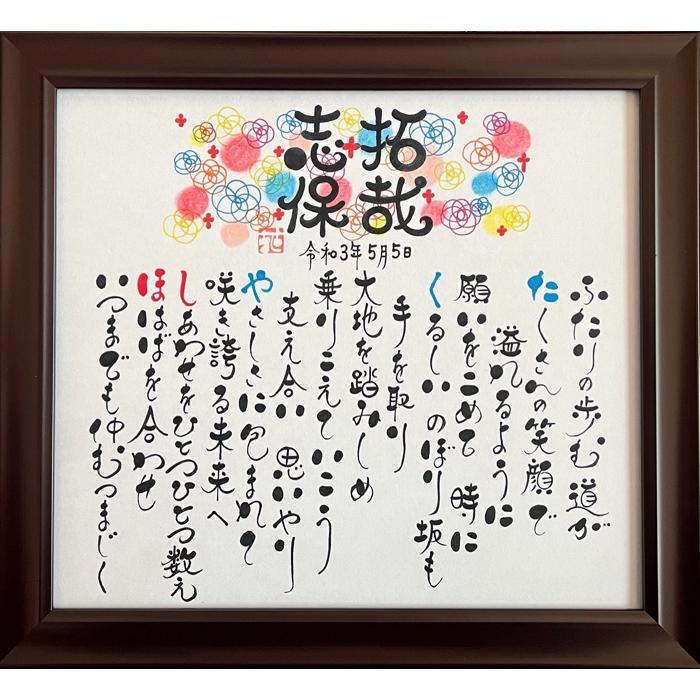 拓哉
志保
令和3年5月5日
ふたりの歩む道が
たくさんの笑顔で
溢れるように
願いをこめて 時に
くるしい のぼり坂も
手を取り
大地を踏みしめ
乗りこえて いこう
支え合い 思いやり
やさしさに包まれて
咲き誇る未来へ
しあわせをひとつひとつ数え
ほはばを合わせ
いつまでも仲むつまじく